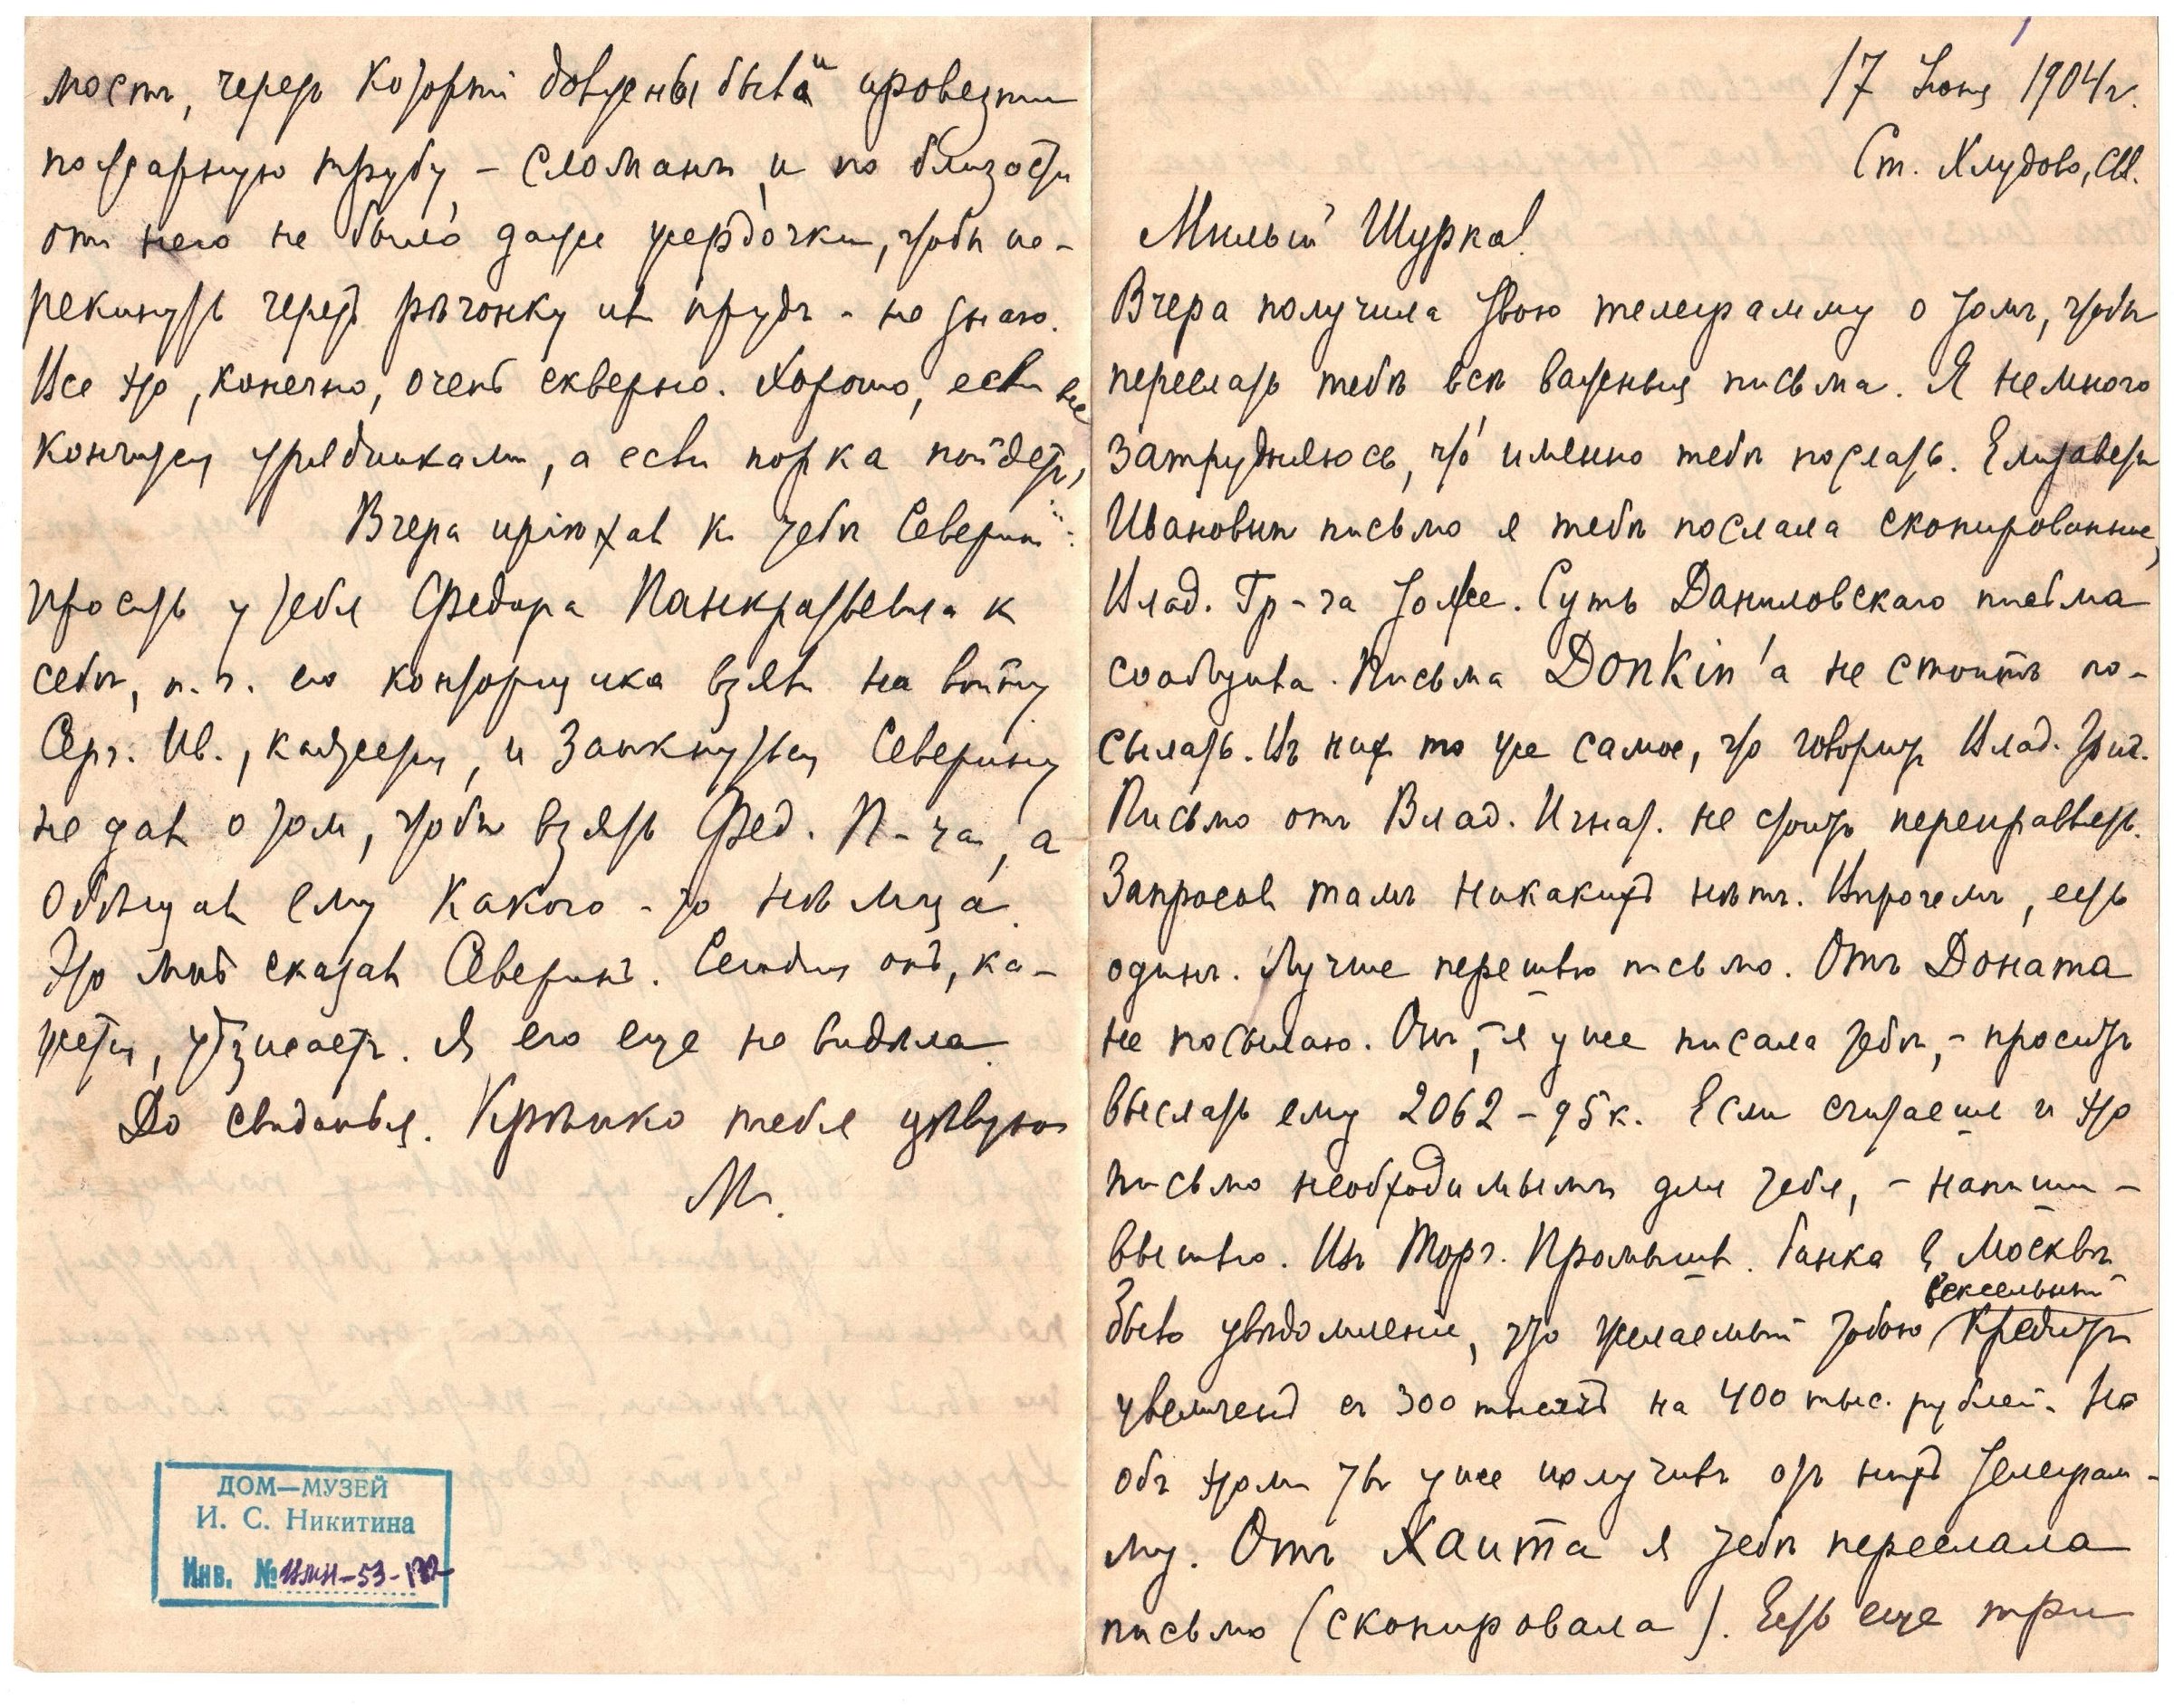 17 Іюня 1904 г.
Ст. Хлудово,
Милый Шурка!
Вчера получила твою телеграмму о томъ, чтобы
переслать тебѣ всѣ важныя письма. Я немного
затрудняюсь, что именно тебѣ послать. Елизаветы
Ивановны письмо я тебѣ послала скопированные,
Влад. Гр-ча тоже. Суть Даниловскаго письма
сообщила. Письма Donkin'а не стоитъ по-
сылать. Въ них то же самое, что говоритъ Влад. Григ.
Письмо отъ Влад. Игнат. не стоитъ переправлять.
Запросовъ тамъ никакихъ нѣтъ. Впрочемъ, есть
одинъ. Лучше перешлю письмо. Отъ Доната
не посылаю. Онъ, - я уже писала тебѣ, - проситъ
выслать ему 2062 - 95 к. Если считаешь и это
письмо необходимымъ для тебя, - напиши -
вышлю. Изъ Торг. Промышл. банка в Москвѣ
было увѣдомленіе, что желаемый тобою вексельный кредитъ
увеличенъ съ 300 тысячъ на 400 тыс. рублей. Но
объ этомъ ты уже получилъ отъ нихъ телеграм-
му. Отъ Хаита я тебѣ переслала
письмо (скопировала). Есть еще три
мостъ, через который должны были провезти
пожарную трубу, - сломанъ, и по близости
отъ него не было даже жердочки, чтобы пе-
рекинуть черезъ рѣчонку ил прудъ - не знаю.
Все это, конечно, очень скверно. Хорошо, если все
кончится урядниками, а если порка пойдетъ,
Вчера пріѣхал къ тебѣ Северин:
просить у тебя Федора Панкратьевича к
себѣ, п. ч. его конторщика взяли на войну
Серг. Ив., кажется, и заикнуться Северину
не дал о том, чтобы взять Фед. П-ча, а
обѣщал ему какого-то нѣмца.
Это мнѣ сказал Северинъ. Сегодня онъ, ка-
жется, уѣзжаетъ. Я его еще не видѣла.
До свиданья. Крѣпко тебя цѣлую
М.
ДОМ—МУЗЕЙ
И. С. Никитина
Инв. №